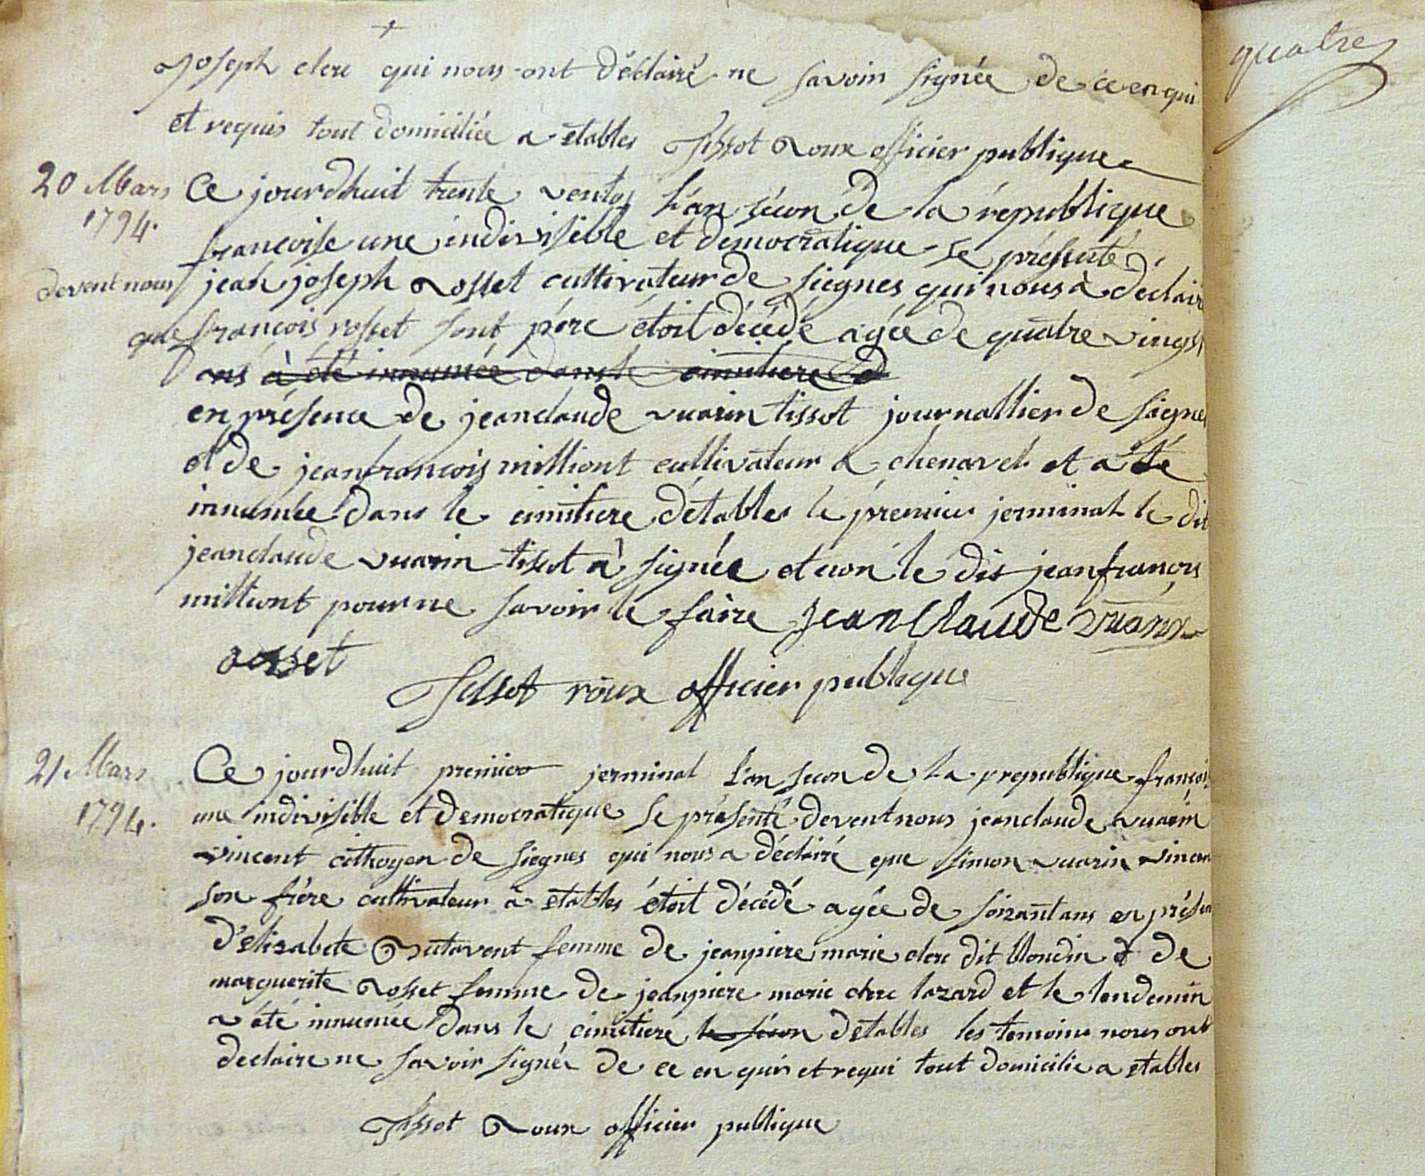 Joseph clerc qui nous ont déclairé ne savoin signée de ce enqui
et requis tout domiciliée a etables Tissot Roux officier publique
20 Mars
1794.
Ce jourdhuit trente ventos L'an sécon de la république
francoise une indivisible et democratique se présenté
devent nous jean joseph Rosset cultivateur de siegnes qui nous à déclairé
que françois rosset sont pére étoit décédé agée de quatre vingst
ans à été innumée dans le cimitiere d
en présence de jeanclaude vuarin tissot journallier de siegne
et de jeanfrancois milliont cultivateur a chenavel et a été
innumée dans le cimitiere d'étables le prémier jerminal le dit
jeanclaude vuarin tissot à signée et non le dit jeanfrançois
milliont pour ne savoir le faire jean Claude vuarin
rosset
Tissot roux officier publique
21 Mars
1794.
Ce jourdhuit premier jerminal L'an secon de la republique françois
une indivisible et democratique se présenté devent nous jeanclaude vuarin
vincent cithoyen de siegnes qui nous a déclairé que simon vuarin vincen
son frére cultivateur à etables étoit décédé agée de soizant ans en présen
d'elisabete Rutavent femme de jeanpiere marie clerc dit blondin et de
marguerite Rosset femme de jeanpiere marie clerc lazard et le lendemin
a été innumee dans le cimitiere le sécon détables les temoins nous ont
declaire ne savoir signée de ce en quir et requi tout domicilie a etables
Tissot Roux officier publique
quatre